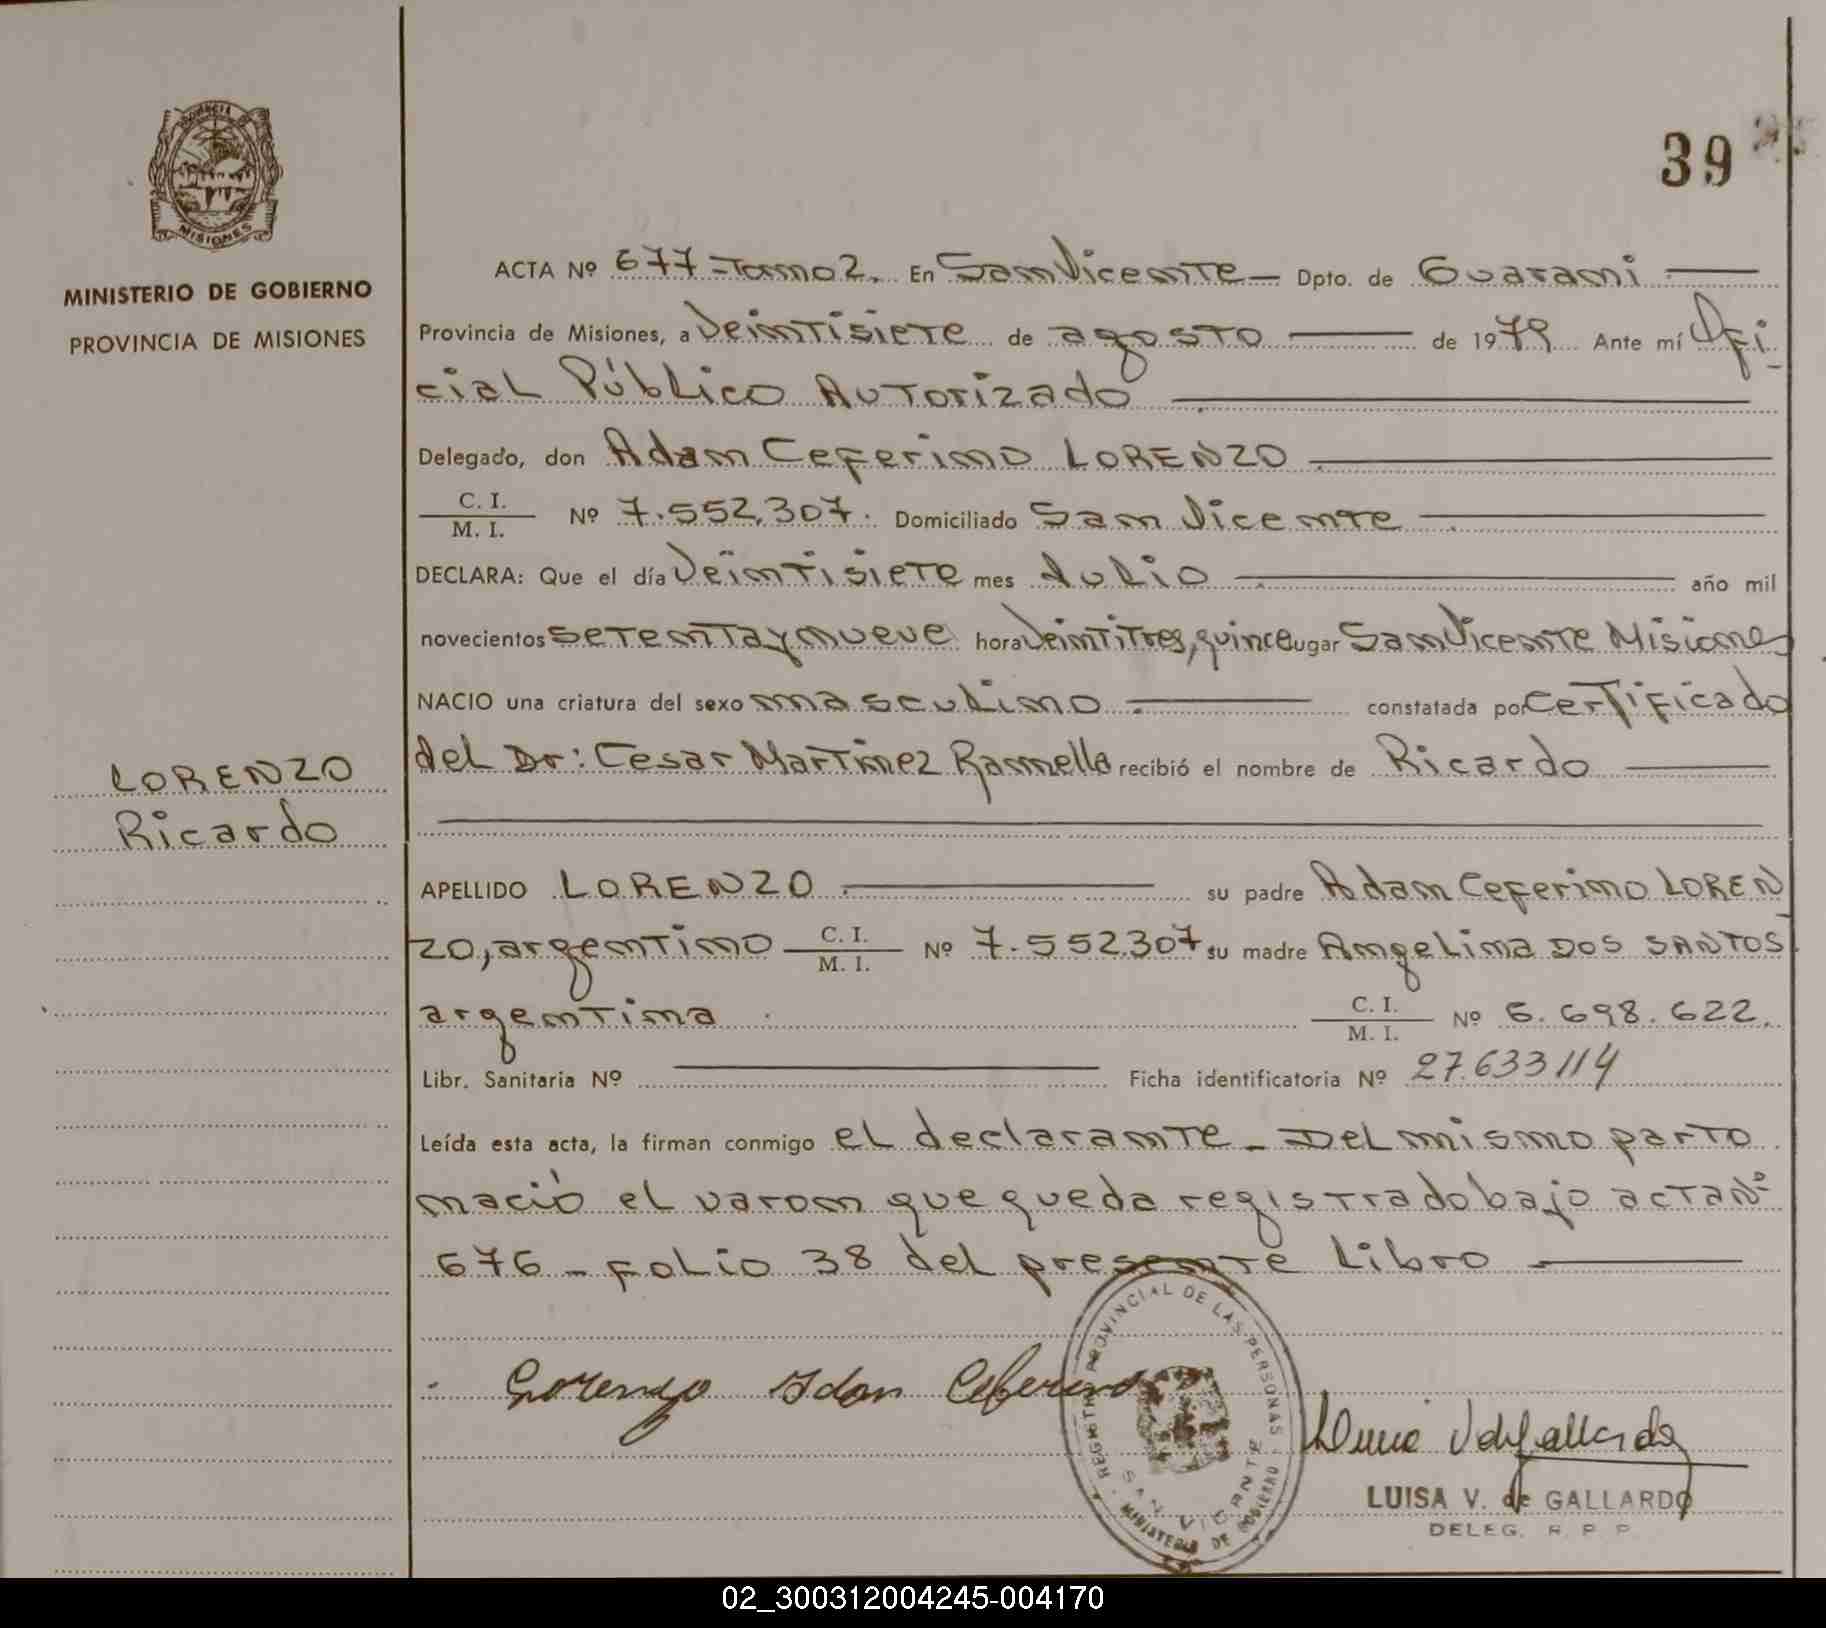 39
PROVINCIA DE
MISIONES
MINISTERIO DE GOBIERNO
PROVINCIA DE MISIONES
ACTA Nº 677 - Tomo 2. En San Vicente — Dpto. de Guarani —
Provincia de Misiones, a Veintisiete de agosto — de 1979 Ante mí Ofi-
cial Público Autorizado —
Delegado, don Adan Ceferino LORENZO —
C. I. / M. I. Nº 7.552.307. Domiciliado San Vicente —
DECLARA: Que el día Veintisiete mes Julio — año mil
novecientos setenta y nueve hora Veintitres, quince lugar San Vicente Misiones
NACIO una criatura del sexo masculino — constatada por Certificado
del Dr: Cesar Martinez Ramella recibió el nombre de Ricardo —
LORENZO
Ricardo
APELLIDO LORENZO — su padre Adan Ceferino LOREN
ZO, argentino C. I. / M. I. Nº 7.552.307 su madre Angelina DOS SANTOS
argentina C. I. / M. I. Nº 6.698.622.
Libr. Sanitaria Nº — Ficha identificatoria Nº 27.633114
Leída esta acta, la firman conmigo el declarante - Del mismo parto
nació el varon que queda registrado bajo acta Nº
676 - Folio 38 del presente Libro —
Lorenzo Adan Ceferino
REGISTRO PROVINCIAL DE LAS PERSONAS
SAN VICENTE
MINISTERIO DE GOBIERNO
LUISA V. de GALLARDO
DELEG. R. P. P.
02_300312004245-004170